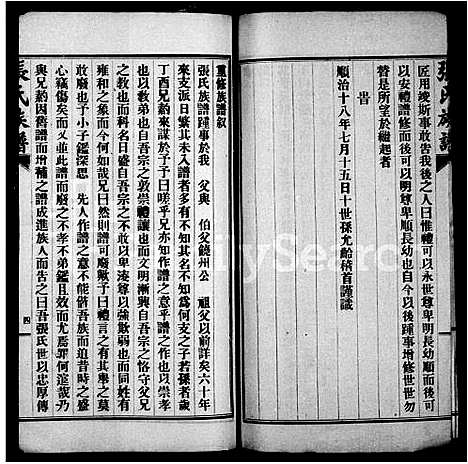 張氏族譜
匠用竣斯事敢告我後之人曰惟禮可以永世尊卑明長幼順而後可
以安禮譜修而後可以明尊卑順長幼也自今以後踵事增修世世勿
替是所望於繼起者
旹
順治十八年七月十五日十世孫允齡稽首謹識
重修族譜敘
張氏族譜踵事於我 父與 伯父饒州公 祖父以前詳矣六十年
來支派日繁其未入譜者多有不知其名不知為何支之子若孫者歲
丁酉兄蔚來謀於予予曰嗟乎兄亦知作譜之意乎此禮讓之遺孝弟
之教也而科名日盛自吾宗之敦崇禮讓也而文明漸興自吾宗之恪守父兄
雍和之象而今何如哉兄曰然則譜可廢歟予曰禮其可廢乎有舉之莫
敢廢也予小子鑑深思 先人作譜之意不能偕吾族而追昔時之盛
心竊傷矣而又並此譜而廢之不孝不弟鑑且效而尤焉罪何逭哉乃
與兄蔚因舊譜而增補之譜成進族人而告之曰吾張氏世以忠厚傳
張氏族譜
四